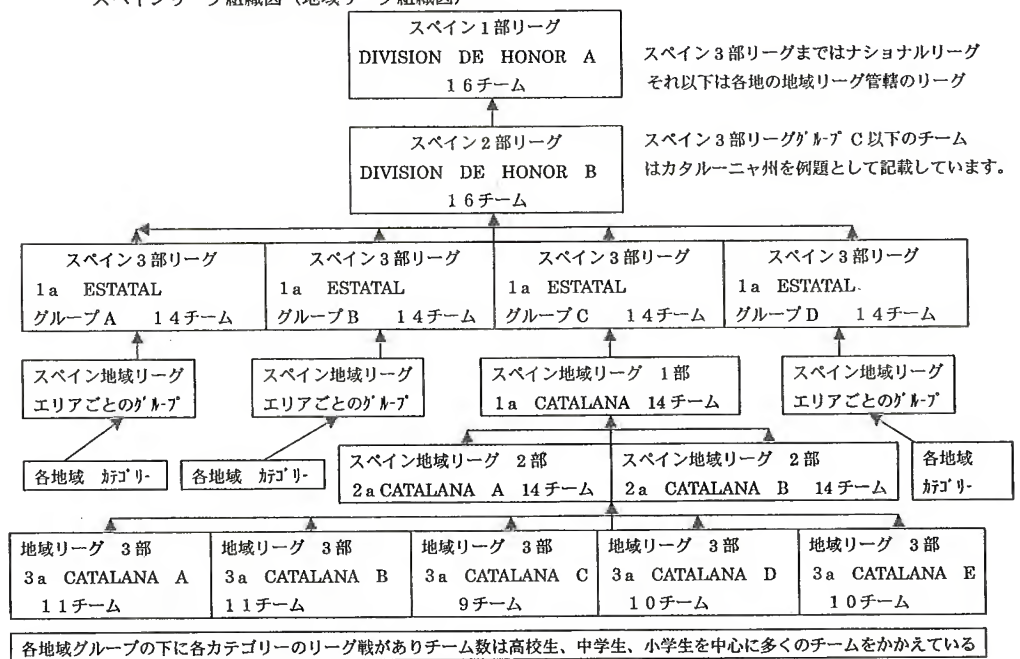 スペインリーグ組織図(地域リーグ組織図)
スペイン1部リーグ
DIVISION DE HONOR A
16チーム
スペイン3部リーグまではナショナルリーグ
それ以下は各地の地域リーグ管轄のリーグ
スペイン2部リーグ
DIVISION DE HONOR B
16チーム
スペイン3部リーググループ C以下のチーム
はカタルーニャ州を例題として記載しています。
スペイン3部リーグ
1a ESTATAL
グループA 14チーム
スペイン3部リーグ
1a ESTATAL
グループB 14チーム
スペイン3部リーグ
1a ESTATAL
グループC 14チーム
スペイン3部リーグ
1a ESTATAL.
グループD 14チーム
スペイン地域リーグ
エリアごとのグループ
スペイン地域リーグ
エリアごとのグループ
スペイン地域リーグ 1部
1a CATALANA 14チーム
スペイン地域リーグ
エリアごとのグループ
各地域 カテゴリー
各地域 カテゴリー
スペイン地域リーグ 2部
2a CATALANA A 14チーム
スペイン地域リーグ 2部
2a CATALANA B 14チーム
各地域
カテゴリー
地域リーグ 3部
3a CATALANA A
11チーム
地域リーグ 3部
3a CATALANA B
11チーム
地域リーグ 3部
3a CATALANA C
9チーム
地域リーグ 3部
3a CATALANA D
10チーム
地域リーグ 3部
3a CATALANA E
10チーム
各地域グループの下に各カテゴリーのリーグ戦がありチーム数は高校生、中学生、小学生を中心に多くのチームをかかえている